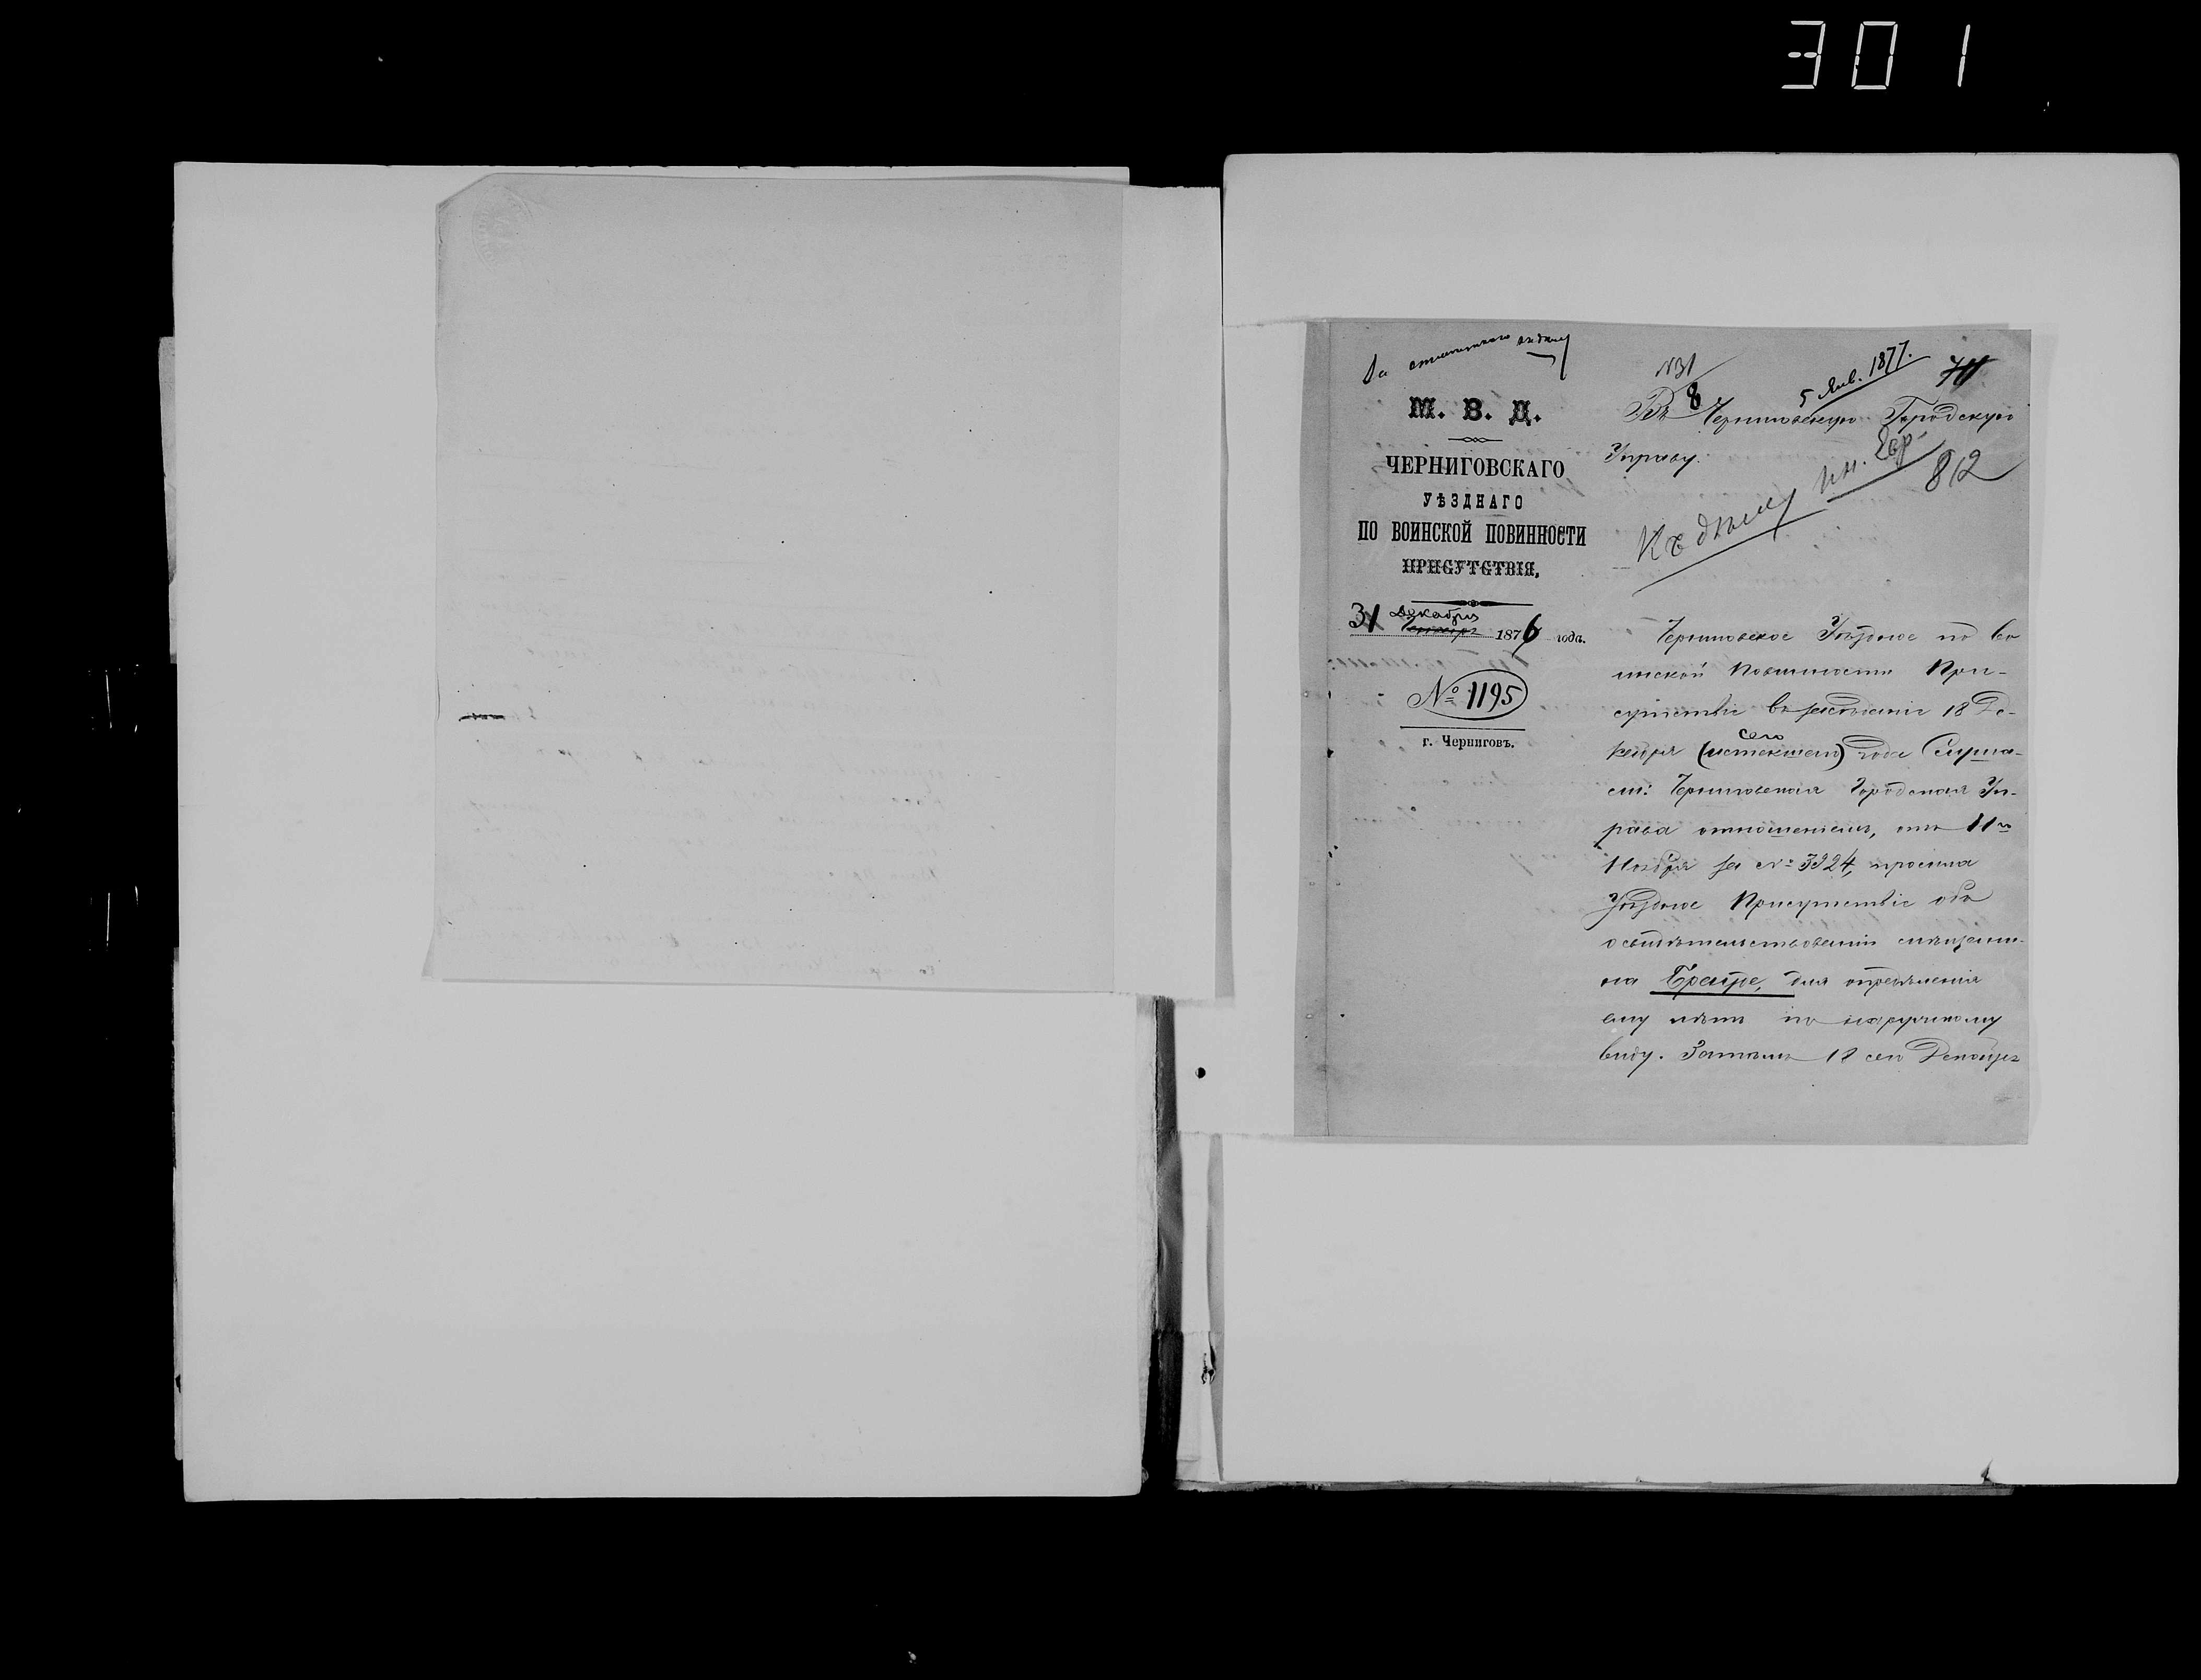 301
№31
5 Янв. 1877.
М. В. Д.
ЧЕРНИГОВСКАГО
УѢЗДНАГО
ПО ВОИНСКОЙ ПОВИННОСТИ
ПРИСУТСТВІЯ,
31 Декабря 1876 года.
№ 1195
г. Черниговъ.
8
Въ Черниговскую Городскую
Управу.
812
Къ дѣлу
Черниговское Уѣздное по во
инской повинности При-
сутствіе въ засѣданіи 18 Де-
кабря (истекшаго) сего года Слуша-
ли: Черниговская Городская Уп-
рава отношеніемъ, отъ 11го
Ноября за № 3924, просила
Уѣздное Присутствіе объ
освидѣтельствованіи мѣщани-
на для опредѣленія
ему лѣтъ по наружному
виду. Затѣмъ 18 сего Декабря